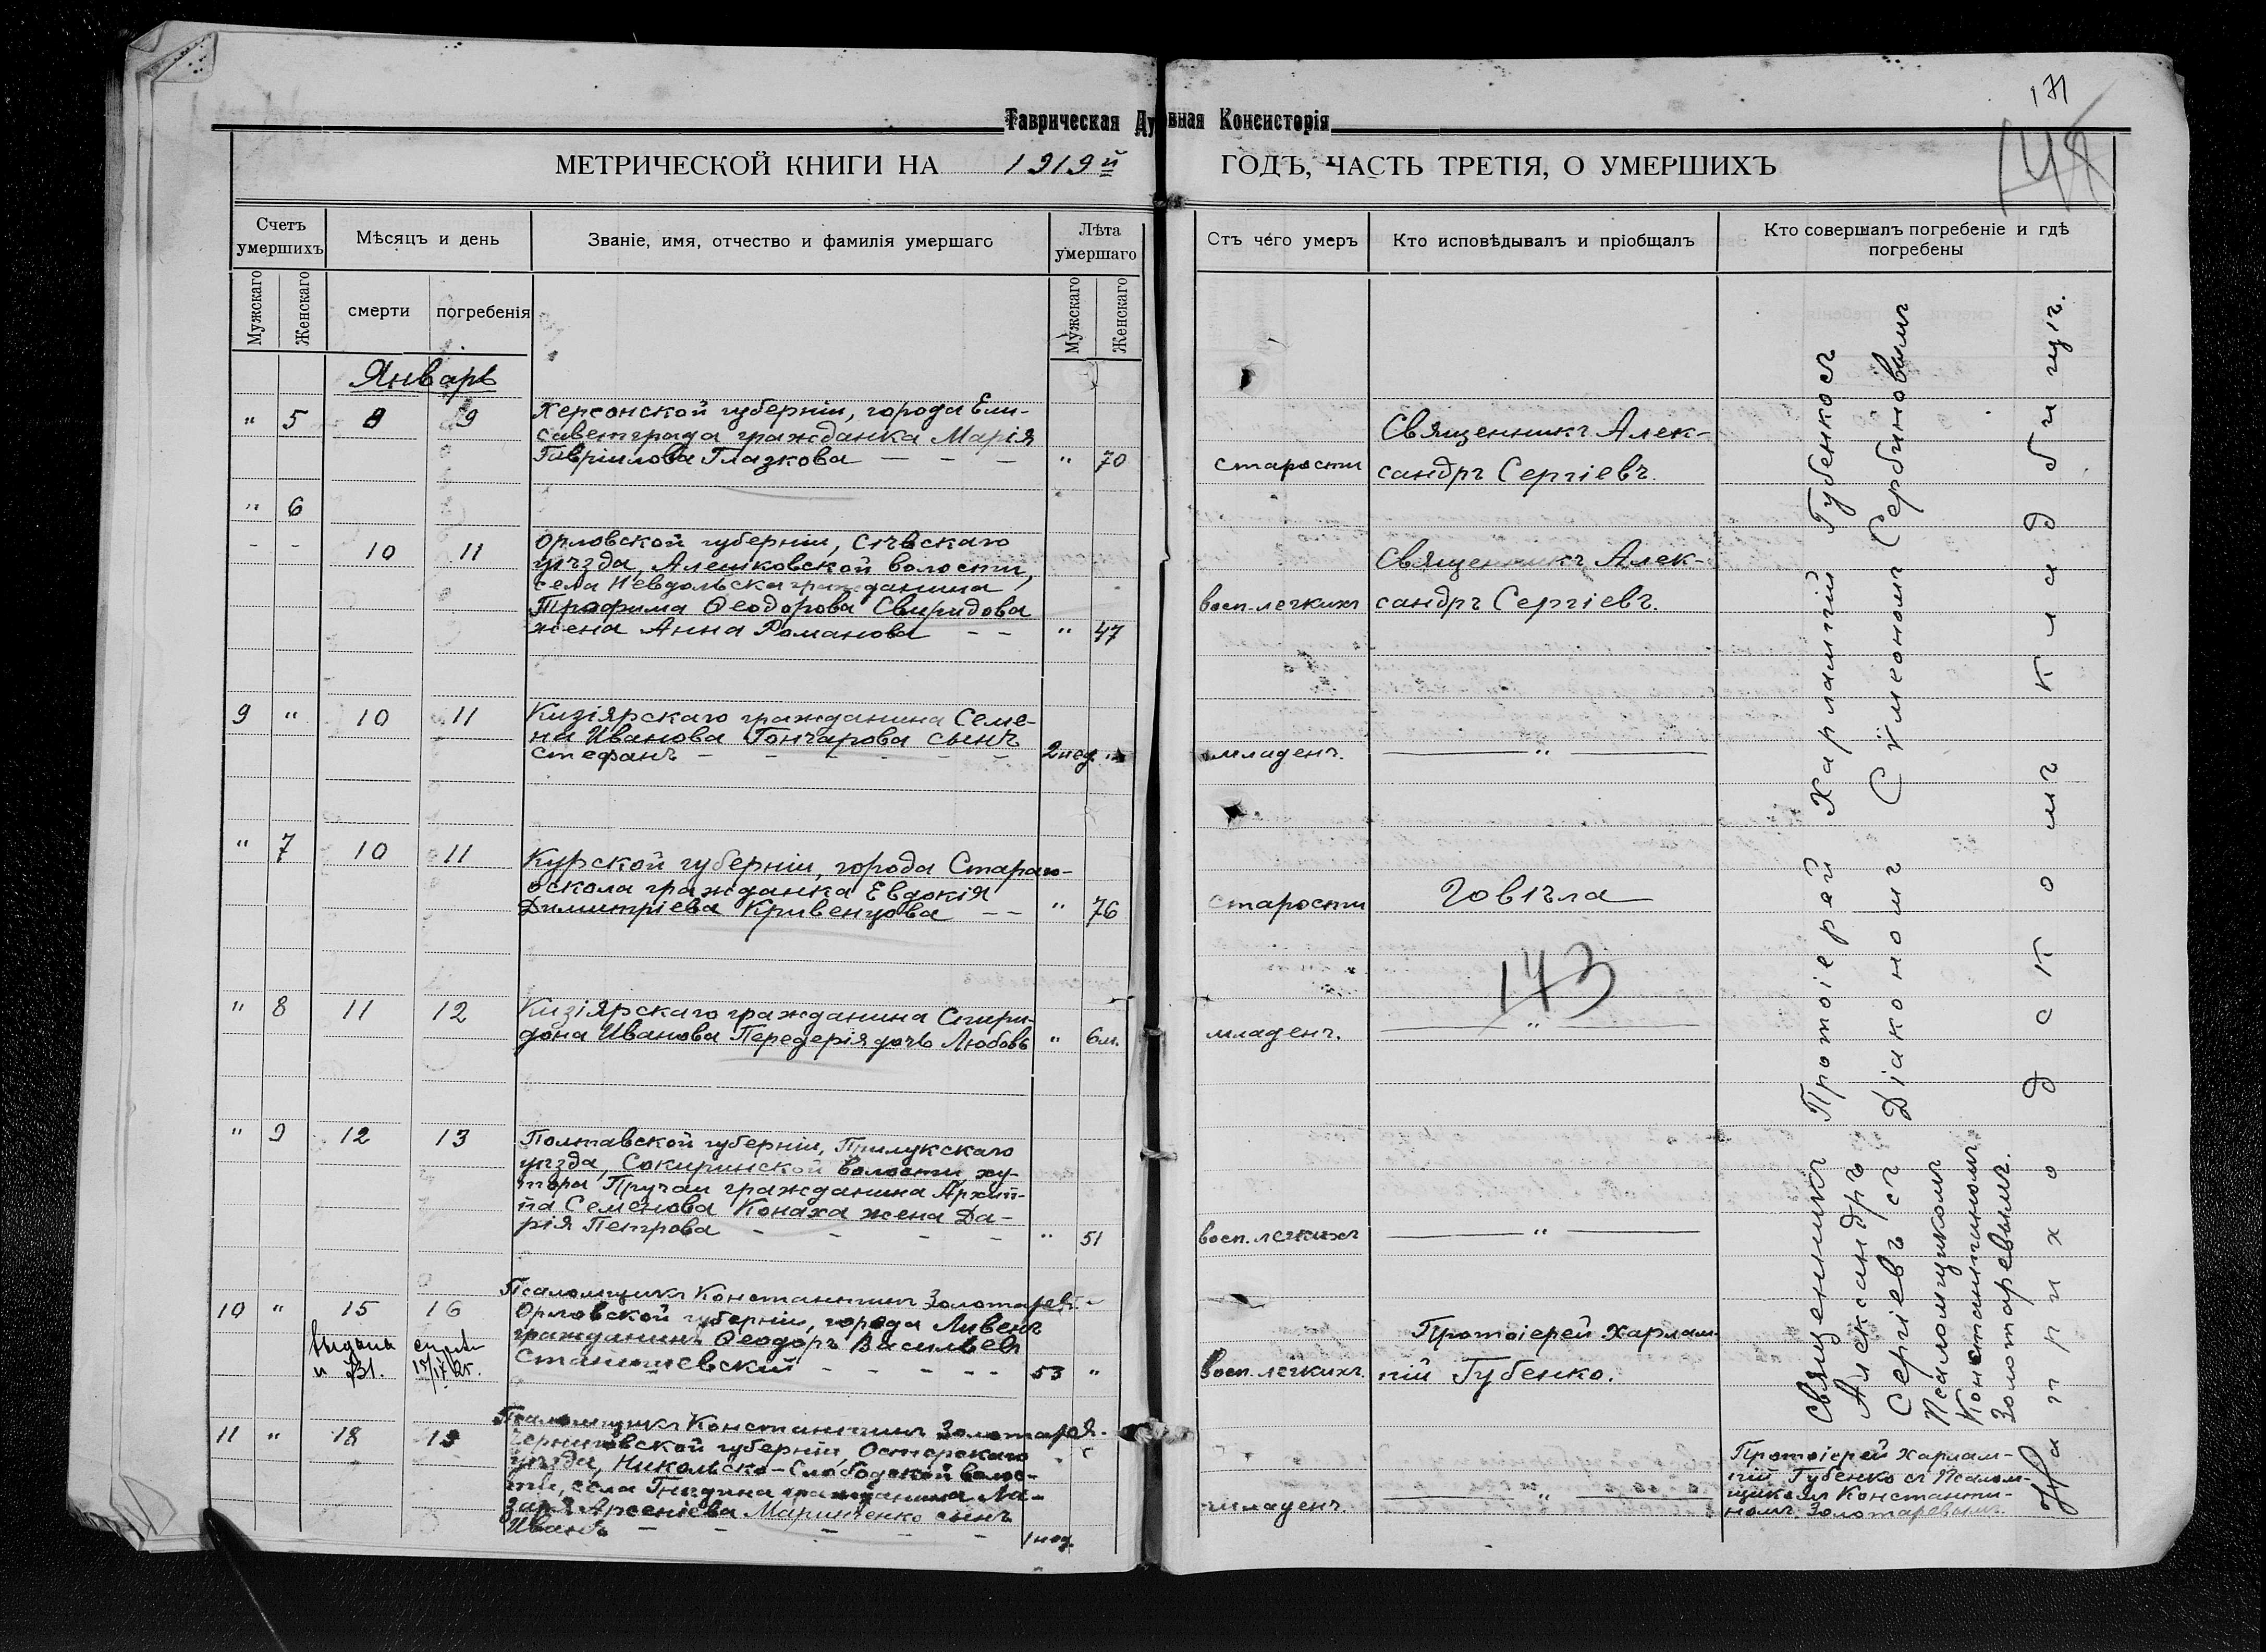 171
Таврическая Духовная Консисторія
МЕТРИЧЕСКОЙ КНИГИ НА 1919й ГОДЪ, ЧАСТЬ ТРЕТІЯ, О УМЕРШИХЪ
Счетъ умершихъ
Мужскаго
Женскаго
Мѣсяцъ и день
смерти
погребенія
Званіе, имя, отчество и фамилія умершаго
Лѣта умершаго
Мужскаго
Женскаго
Отъ чего умеръ
Кто исповѣдывалъ и пріобщалъ
Кто совершалъ погребеніе и гдѣ
погребены
Январь
" 5 8 9
Херсонской губерніи, города Ели-
саветграда гражданка Марія
Гавріилова Глазкова — — —
" 70
старости
Священникъ Алек-
сандръ Сергіевъ.
" 6
- - 10 11
Орловской губерніи, Сѣвскаго
уѣзда, Алешковской волости,
села Невдольска гражданина
Трофима Ѳеодорова Свиридова
жена Анна Романова — —
" 47
восп. легкихъ
Священникъ Алек-
сандръ Сергіевъ.
9 " 10 11
Кизіярскаго гражданина Семе-
на Иванова Гончарова сынъ
Стефанъ — — — — — —
2 нед. "
младенч.
— " —
" 7 10 11
Курской губерніи, города Стараго-
оскола гражданка Евдокія
Димитріева Кривенцова — —
" 76
старости
Говѣла
143
" 8 11 12
Кизіярскаго гражданина Спири-
дона Иванова Передерія дочь Любовь
" 6 м.
младенч.
— " —
" 9 12 13
Полтавской губерніи, Прилукскаго
уѣзда, Сокиринской волости, ху-
тора Пручаи гражданина Архип-
па Семенова Конаха жена Да-
рія Петрова — — — —
" 51
восп. легкихъ
— " —
Псаломщикъ Константинъ Золотарев.
10 " 15 16
Орловской губерніи, города Ливенъ
гражданинъ Ѳеодоръ Васильевъ
Станишевский — — — —
53 "
восп. легкихъ.
Протоіерей Харлам-
пій Губенко.
Псаломщикъ Константинъ Золотарев.
11 " 18 19
Черниговской губерніи, Остерскаго
уѣзда, Никольско-Слободской волос-
ти, села Гнидина гражданина Ла-
заря Арсеніева Маринченко сынъ
Иванъ — — — — —
1 нед.
младенч.
— " —
Протоіерей Харлам-
пій Губенко съ Псалом-
щикомъ Константи-
номъ Золотаревымъ.
Протоіерей Харлампій Губенко съ
Діакономъ Сѵмеономъ Сербиновымъ
Священникъ
Александръ
Сергіевъ съ
Псаломщикомъ
Константиномъ
Золотаревымъ.
На приходскомъ кладбищѣ.